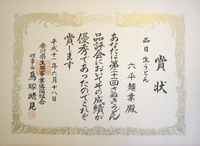 賞状
品目 生うどん
六平麺業殿
あなたは第二十一回さぬきうどん
品評会においてその成績が
優秀であったのでこれを
賞します
平成十一年六月十八日
香川県生麺事業協同組合
理事長